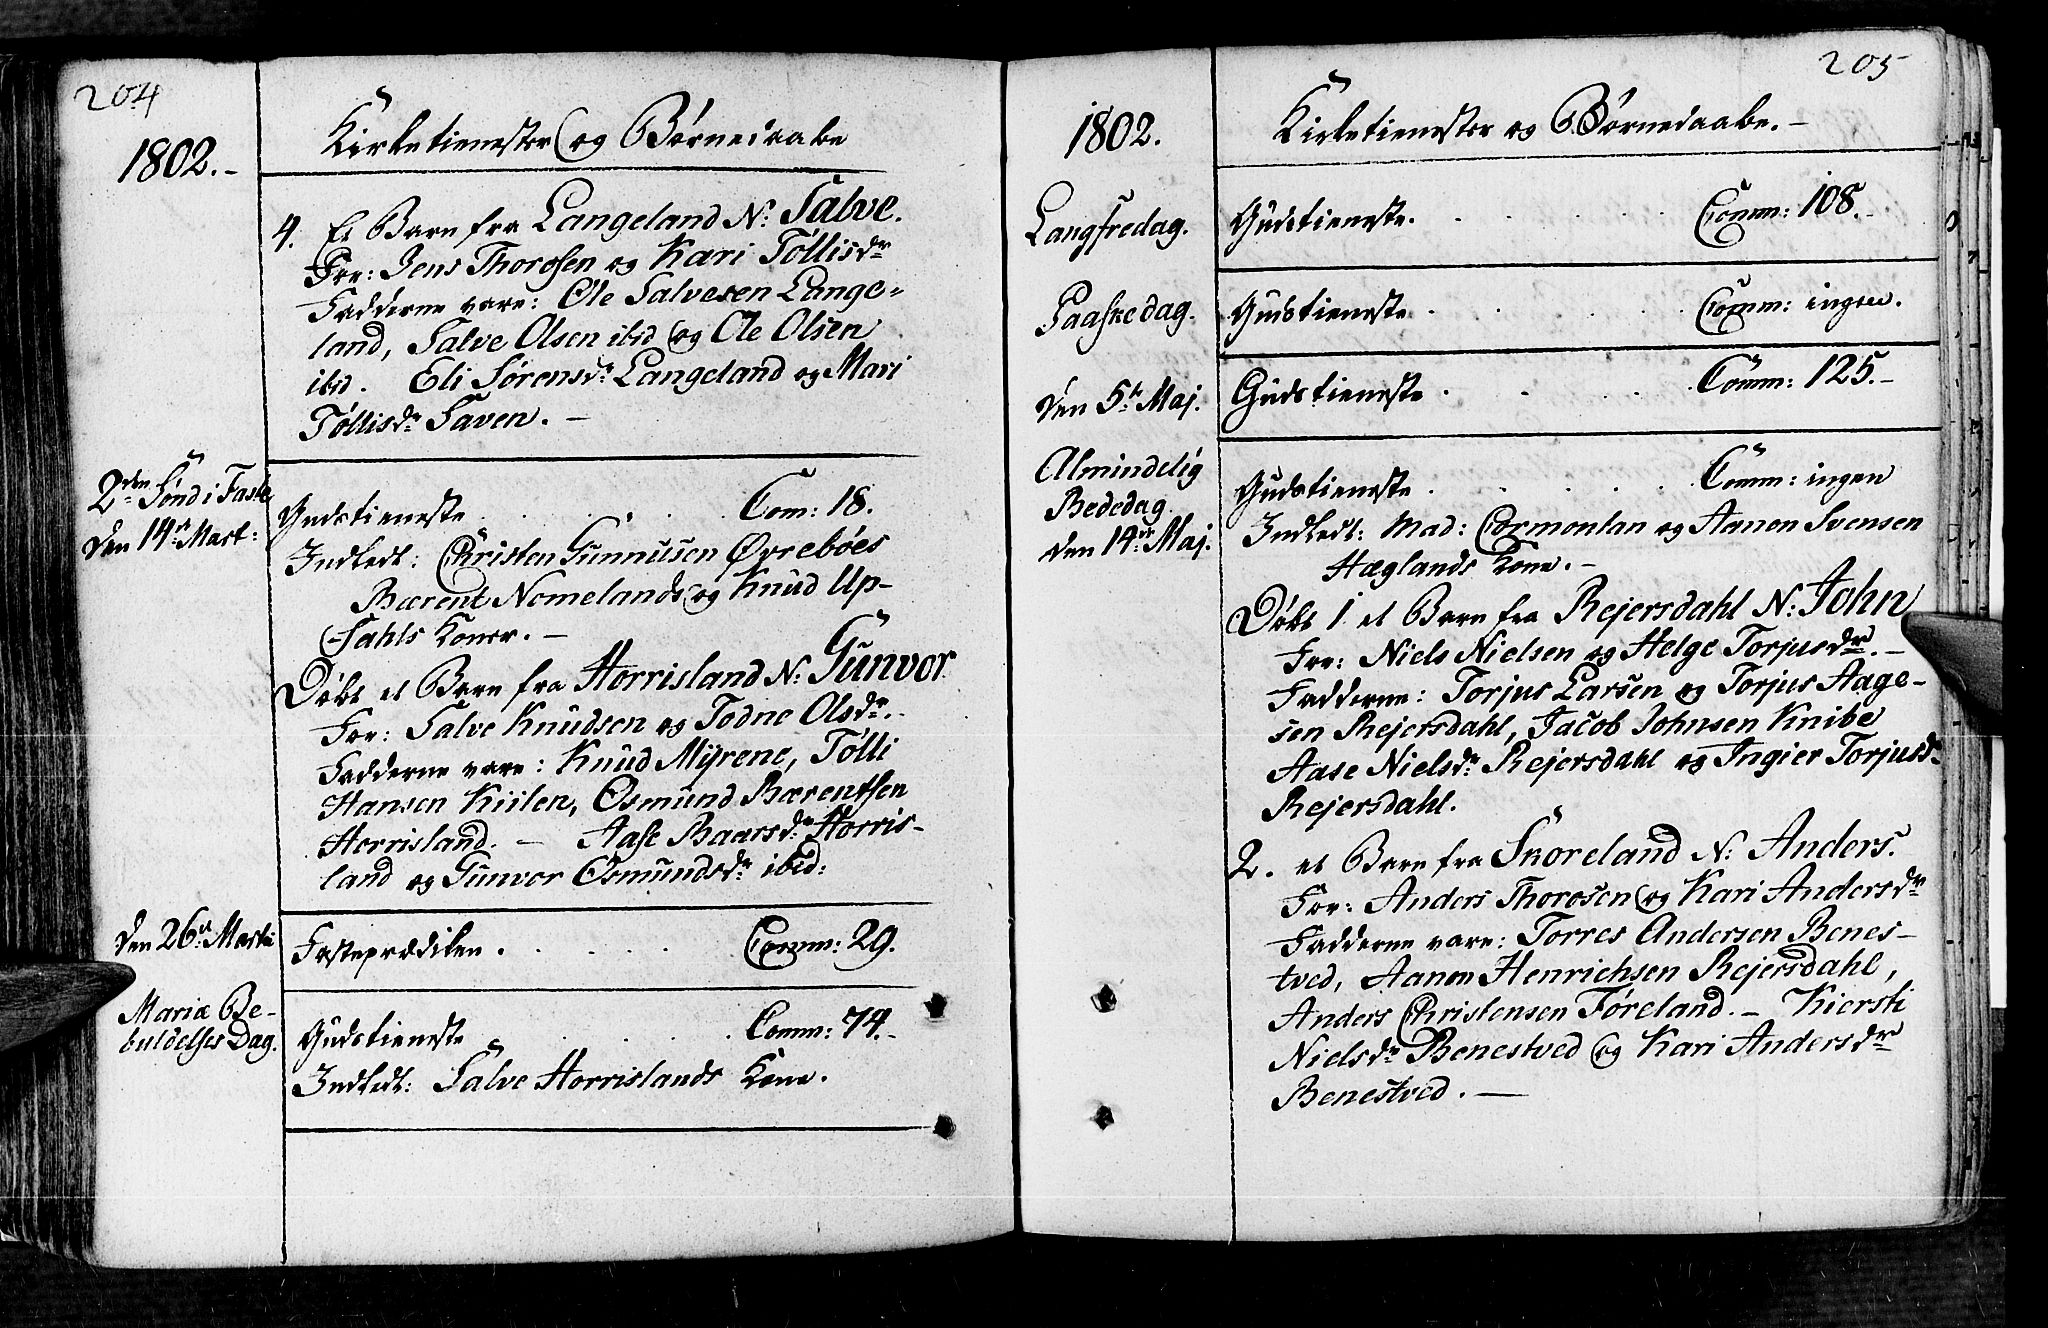 204
1802.-
Kirketienester og Børnedaabe
4. Et Barn fra Langeland N: Salve.
For: Jens Thorosen og Kari Tøllisdr
Fadderne vare: Ole Salvesen Lange-
land, Salve Olsen ibid og Ole Olsen
ibid. Eli Sørensdr Langeland og Mari
Tøllisdr Saven. -
2den Sønd i Faste
den 14de Mart:
Gudstieneste . . . . Com: 18.
Indledt: Christen Gunnusen Øvrebøes
Bærent Nomelands og Knud Up-
sahls Koner. -
Døbt et Barn fra Horrisland N: Gunvor
For: Salve Knudsen og Todne Olsdr.
Fadderne vare: Knud Myrene, Tølli
Hansen Kiilen, Osmund Bærentsen
Horrisland. - Aase Baarsdr Horris-
land og Gunvor Osmundsdr ibid:
den 26de Martii
Fasteprædiken . . . . Comm: 29.
Mariæ Be-
budelses Dag.
Gudstieneste . . . . Comm: 74.-
Indledt: Salve Horrislands Kone.
205
1802.
Kirketienester og Børnedaabe. -
Langfredag.
Gudstieneste. . . . . Comm: 108.-
Paaskedag.
Gudstieneste . . . . Comm: ingen.
den 5te Maj.
Gudstieneste . . . . Comm: 125.-
Almindelig
Bededag
den 14de Maj.
Gudstieneste . . . . Comm: ingen
Indledt: Mad: Cormontan og Aanon Svensen
Hæglands Kone. -
Døbt 1 et Barn fra Rejersdahl N: John
For: Niels Nielsen og Helge Torjusdr. -
Fadderne: Torjus Larsen og Torjus Aage-
sen Rejersdahl, Jacob Johnsen Knibe
Aase Nielsdr Rejersdahl og Ingier Torjusd.
Rejersdahl.
2. et Barn fra Snoreland N: Anders.
For: Anders Thorosen og Kari Andersdr
Fadderne vare: Torres Andersen Benes-
tved, Aanon Henrichsen Rejersdahl,
Anders Christensen Føreland. - Kiersti
Nielsdr Benestved og Kari Andersdr
Benestved. -